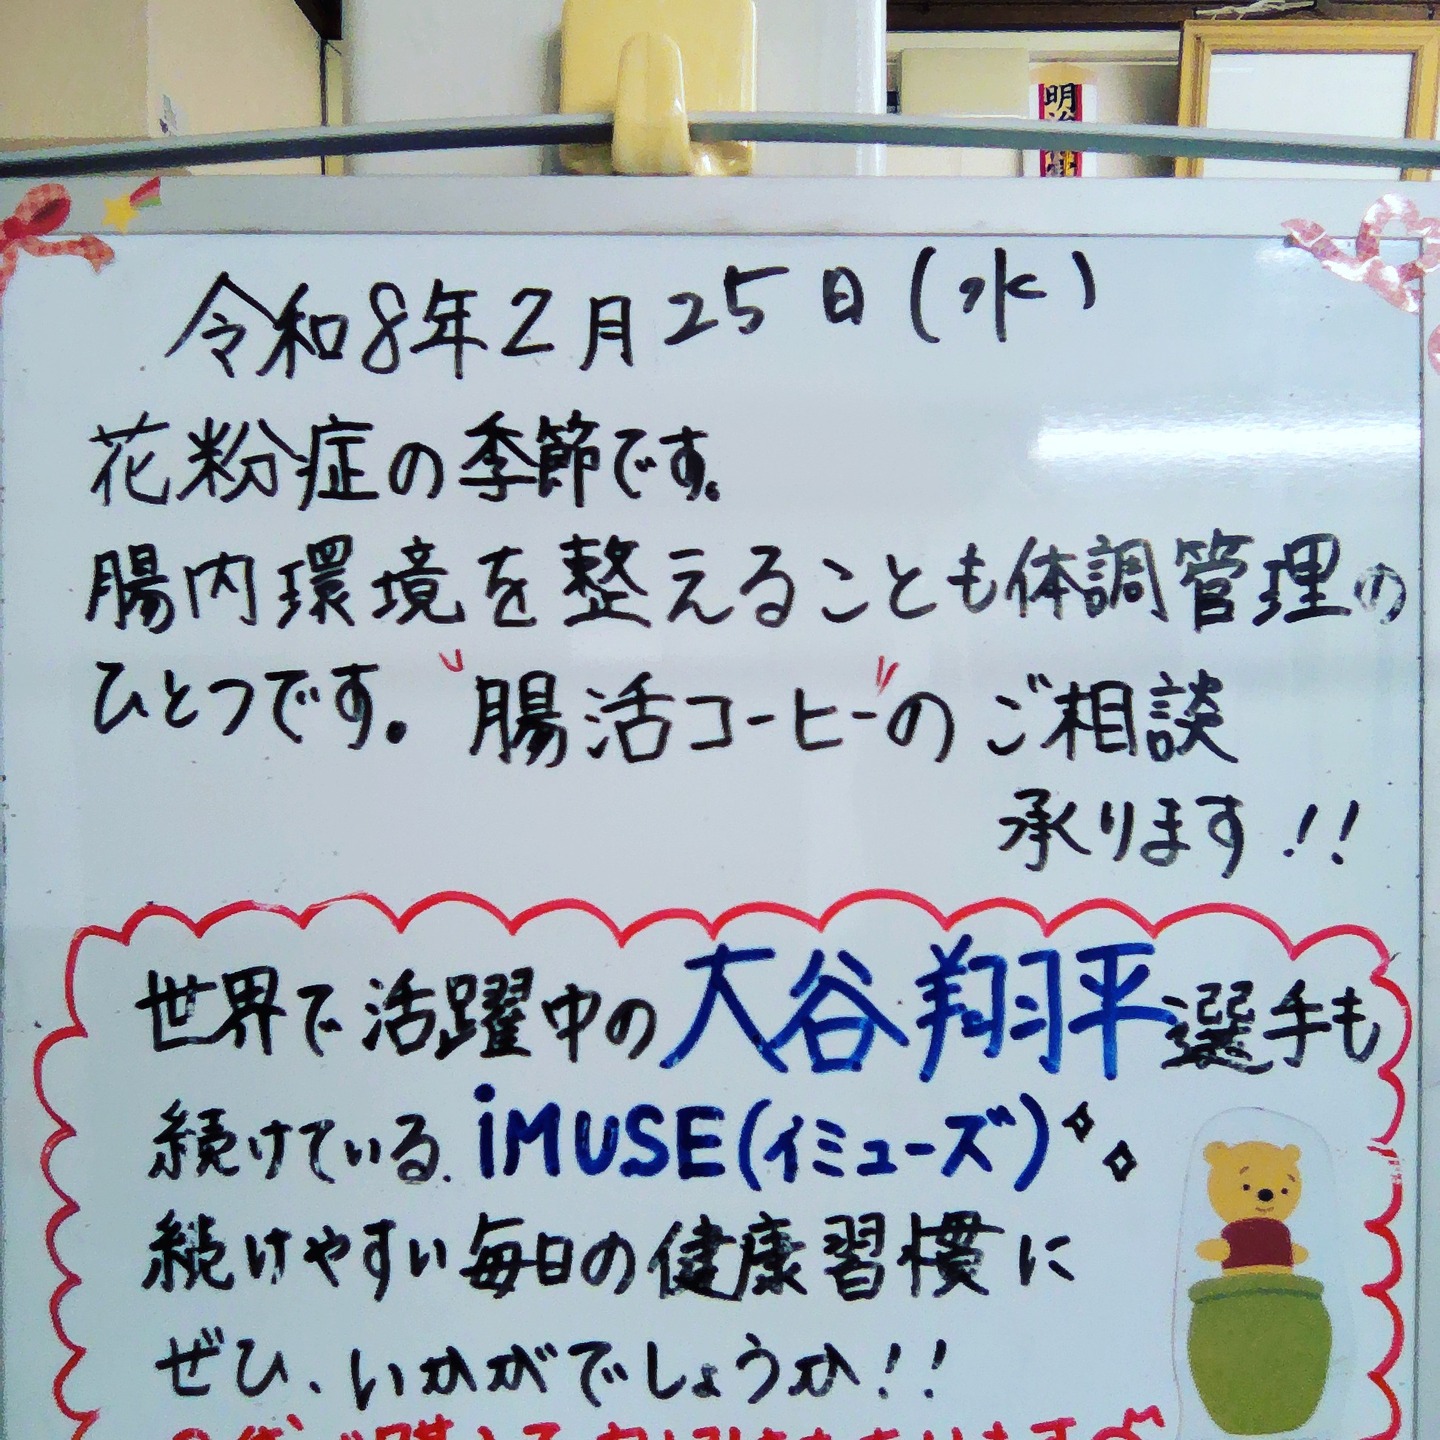 明治
令和8年2月25日(水)
花粉症の季節です。
腸内環境を整えることも体調管理の
ひとつです。"腸活コーヒー"のご相談
承ります!!
世界で活躍中の大谷翔平選手も
続けている、iMUSE(イミューズ)
続けやすい毎日の健康習慣に
ぜひ、いかがでしょうか!!